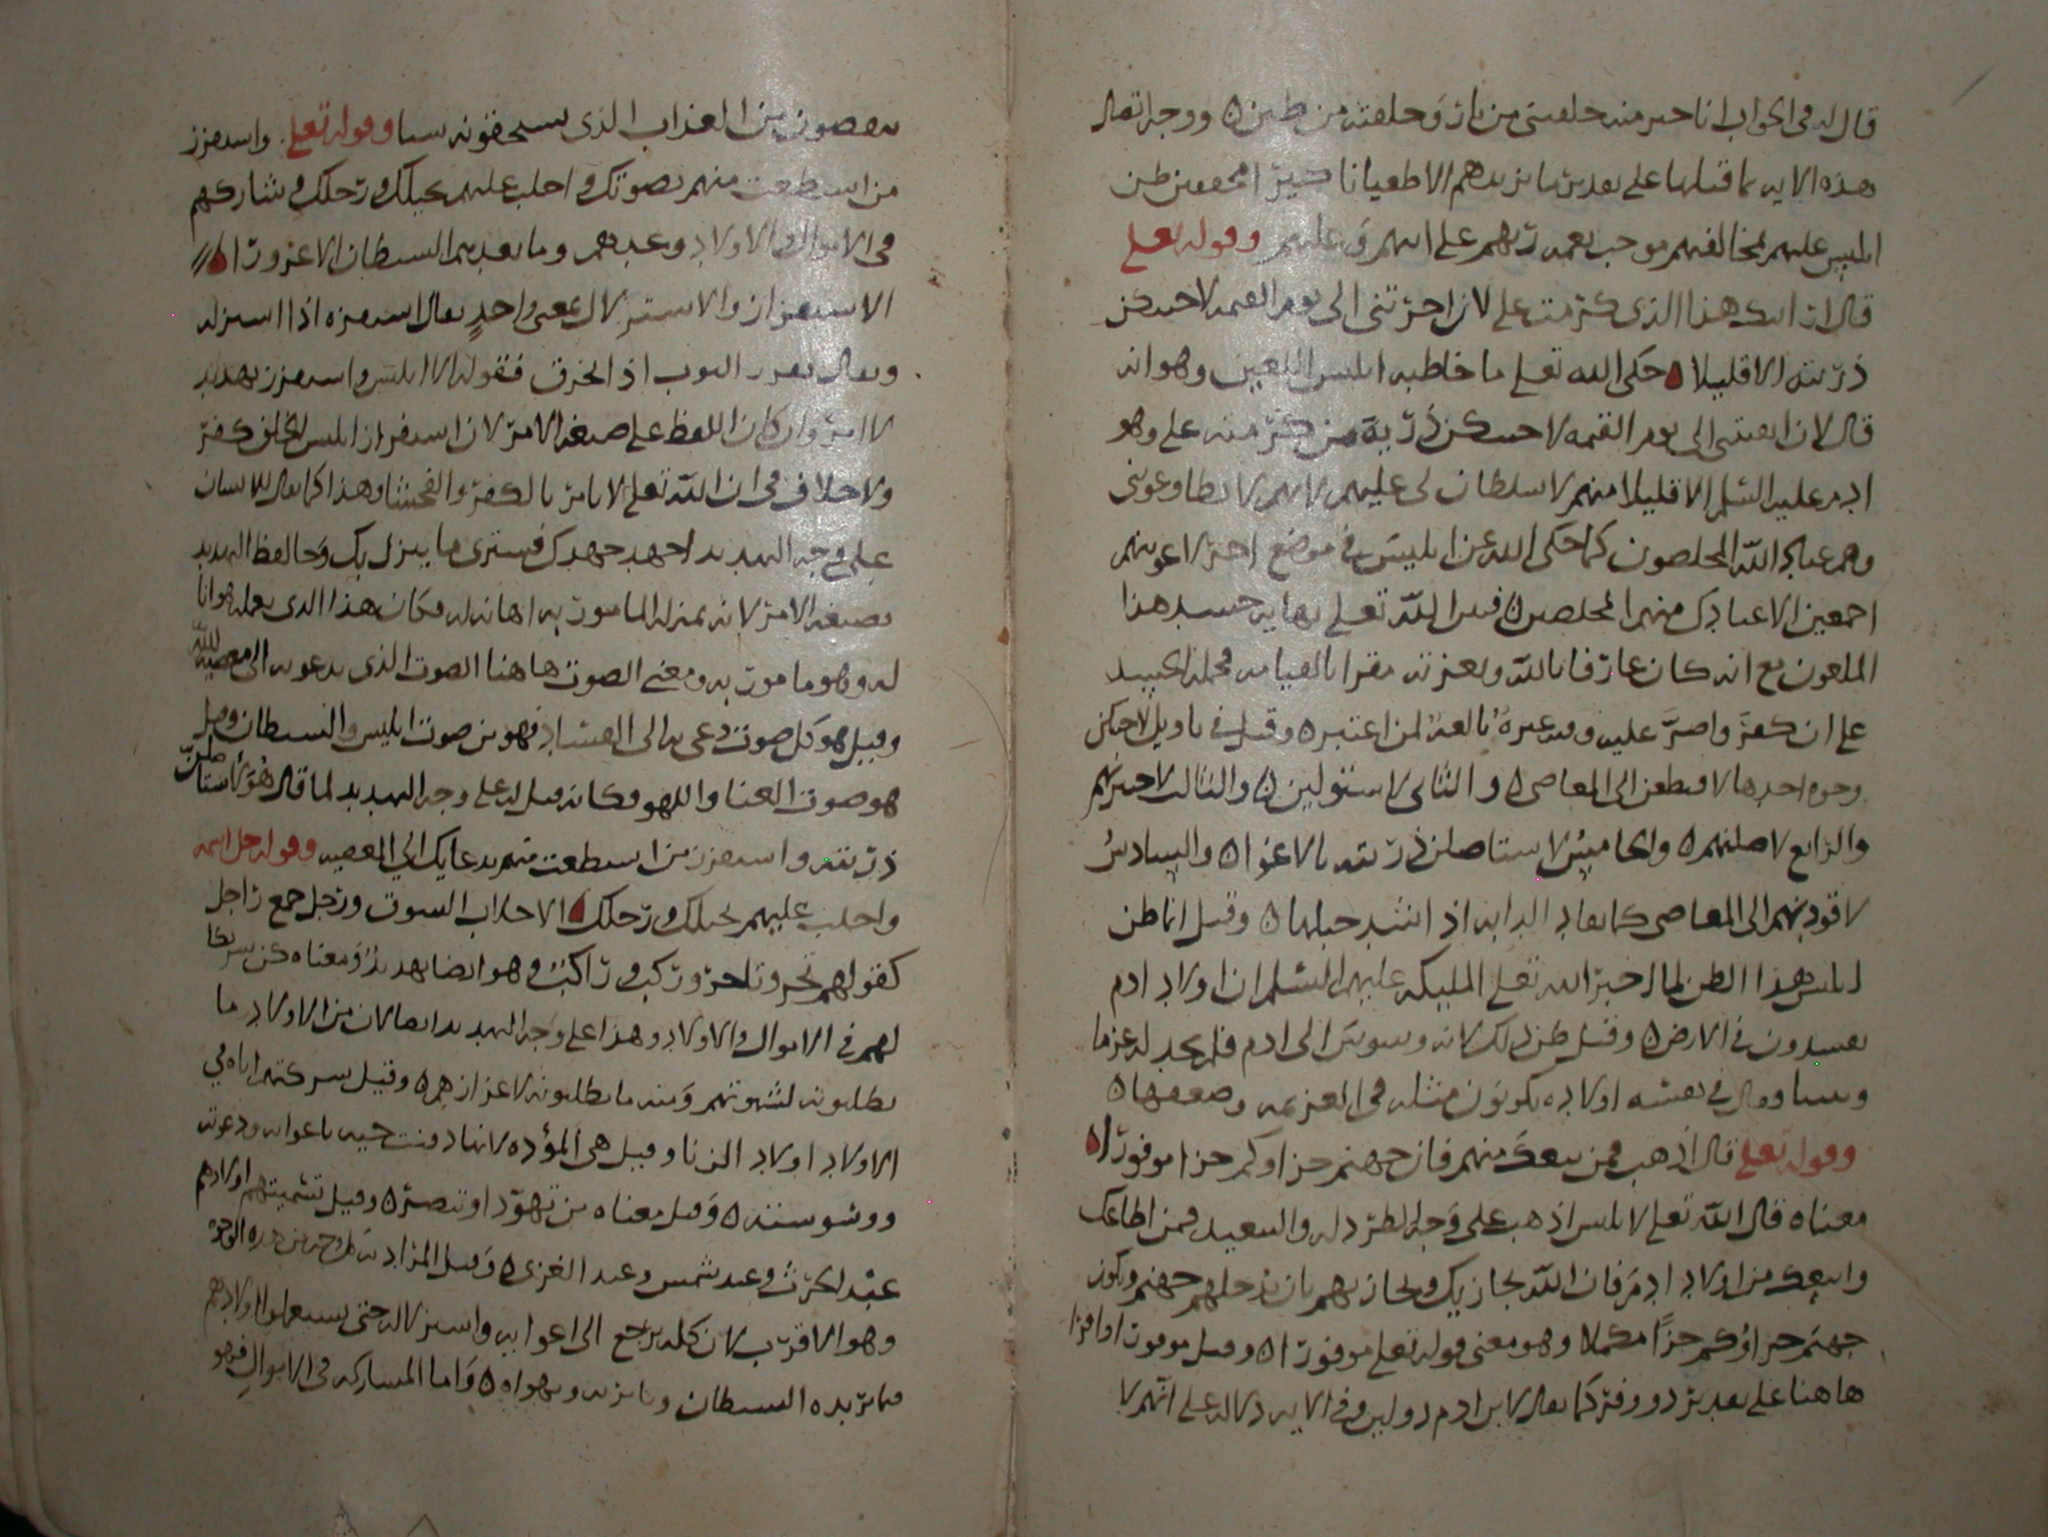 قال له في الجواب انا خير منه خلقتني من نار وخلقته من طين ووجه اتصال
هذه الايه بما قبلها على تقدير ما يزيدهم الا طغيانا كبيرا محققين ظن
ابليس عليهم مخالفتهم موجب نعمه ربهم على ابيهم وعليهم وقوله تعلى
قال ارايتك هذا الذي كرمت علي لان اخرتني الى يوم القيمه لاحتنكن
ذريته الا قليلا حكى الله تعلى ما خاطبه ابليس اللعين وهو انه
قال لان ابقيتني الى يوم القيمه لاحتنكن ذرية من كرمته علي وهو
ادم عليه السلم الا قليلا منهم لا سلطان لي عليهم لانهم لا يطاوعونني
وهم عباد الله المخلصون كما حكى الله عن ابليس في موضع اخر لاغوينهم
اجمعين الا عبادك منهم المخلصين فبين الله تعلى نهايه حسد هذا
الملعون مع انه كان عارفا بالله وبعزته مقرا بالقيامه فحمله الحسد
على ان كفر واصر عليه وفيه عبرة بالغة لمن اعتبره وقيل في تاويل لاحتنكن
وجوه احدها لاقتطعن الى المعاصي والثاني لاستولين والثالث لاحتوينهم
والرابع لاضلنهم والخامس لاستاصلن ذريته بالاغوا والسادس
لاقودنهم الى المعاصي كما تقاد الدابه اذا شد حبلها وقيل انما ظن
ابليس هذا الظن لما اخبر الله تعلى المليكه عليهم السلم ان اولاد ادم
يفسدون في الارض وقيل ظن ذلك لانه وسوس الى ادم فلم يجد له عزما
وقال في نفسه اولاده يكونون مثله في العزيمه وضعفها
وقوله تعلى قال اذهب فمن تبعك منهم فان جهنم جزاوكم جزا موفورا
معناه قال الله تعلى لابليس اذهب على وجه الطرد له والتبعيد فمن اطاعك
واتبعك من اولاد ادم فان الله يجازيك ويجازيهم بان يدخلهم جهنم ويكون
جهنم جزاوكم جزا مكملا وهو معنى قوله تعلى موفورا وقيل موفورا وافرا
هاهنا على تقدير ذو وفر كما يقال لابن ادم دو لبن وفي الايه دلاله على انهم لا
ينقصون من العذاب الذي يستحقونه شيا وقوله تعلى واستفزز
من استطعت منهم بصوتك واجلب عليهم بخيلك ورجلك وشاركهم
في الاموال والاولاد وعدهم وما يعدهم الشيطان الا غرورا
الاستفزاز والاستزلال بمعنى واحد يقال استفزه اذا استزله
ويقال تفزز الثوب اذا انخرق فقوله لابليس واستفزز تهديد
لا امر وان كان اللفظ على صيغه الامر لان استفزاز ابليس للخلق كفر
ولا خلاف في ان الله تعلى لا يامر بالكفر والفحشا وهذا كما يقال للانسان
على وجه التهديد اجهد جهدك فسترى ما ينزل بك وجا لفظ التهديد
بصيغه الامر لانه بمنزله المامور به اهانه له فكان هذا الذي يعمله هوانا
له وهو مامور به ومعنى الصوت هاهنا الصوت الذي يدعو به الى معصيه الله
وقيل هو كل صوت دعي به الى الفساد فهو من صوت ابليس والشيطان وقيل
هو صوت الغنا واللهو فكانه قيل له على وجه التهديد لما قال هو لاستاصلن
ذريته واستفزز من استطعت منهم بدعايك الى المعصيه وقوله جل اسمه
واجلب عليهم بخيلك ورجلك الاجلاب السوق ورجل جمع راجل
كقولهم تجر وتاجر وركب وراكب وهو ايضا تهديد ومعناه كن شريكا
لهم في الاموال والاولاد وهذا على وجه التهديد ايضا لان من الاولاد ما
يطلبونه لشهوتهم ومنه ما يطلبونه لاعزازهم وقيل شركته اياه في
الاولاد اولاد الزنا وقيل هي المؤده لانها دفنت حيه باغوايه ودعوته
ووسوسته وقيل معناه من تهود او تنصر وقيل تسميتهم اولادهم
عبد الحرث وعبد شمس وعبد العزى وقيل المراد به كل وجه من هذه الوجوه
وهو الاقرب لان كله يرجع الى اغوايه واستزلاله حتى يستعملوا اولادهم
فيما يريده الشيطان ويهواه واما المشاركه في الاموال فهو